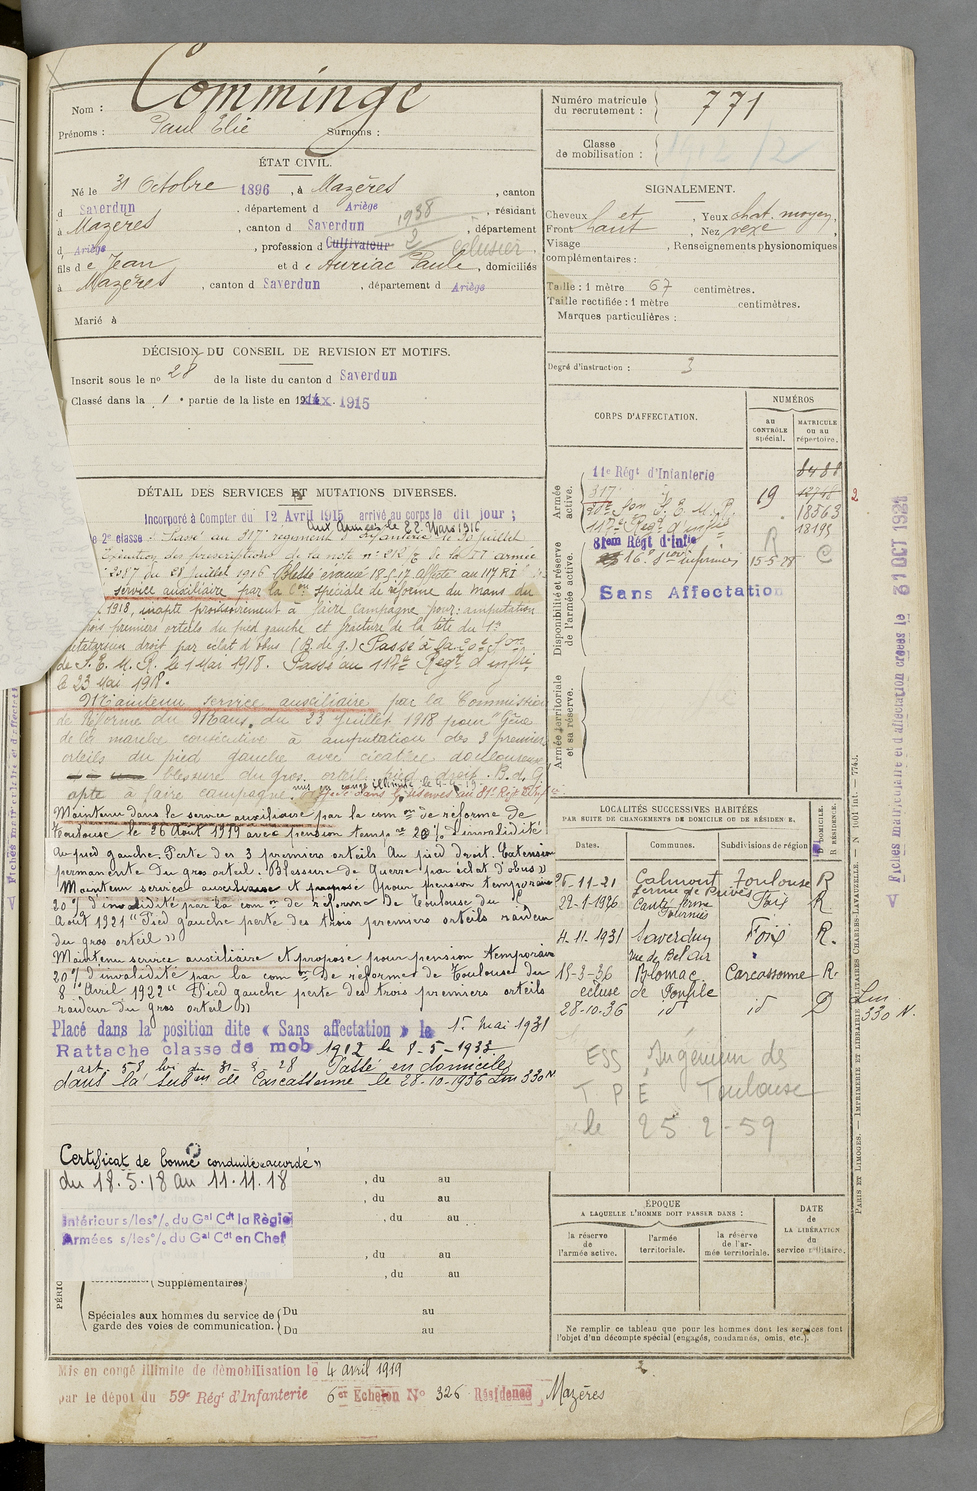 Nom : Comminge
Prénoms : Paul Elie Surnoms :
Numéro matricule du recrutement : 771
Classe de mobilisation :
ÉTAT CIVIL.
Né le 31 Octobre 1896, à Mazères, canton
d Saverdun, département d Ariège, résidant
à Mazères, canton d Saverdun, département
d Ariège, profession d Cultivateur éclusier
fils de Jean et de Auriac Paule, domiciliés
à Mazères, canton d Saverdun, département d Ariège
Marié à
SIGNALEMENT.
Cheveux Yeux chat. moyen
Front haut, Nez
Visage , Renseignements physionomiques
complémentaires :
Taille : 1 mètre 67 centimètres.
Taille rectifiée : 1 mètre centimètres.
Marques particulières :
Degré d'instruction : 3
DÉCISION DU CONSEIL DE REVISION ET MOTIFS.
Inscrit sous le nº 28 de la liste du canton d Saverdun
Classé dans la 1 partie de la liste en 1915
DÉTAIL DES SERVICES ET MUTATIONS DIVERSES.
Incorporé à Compter du 12 Avril 1915 arrivé au corps le dit jour ;
Aux Armées le 22 Mars 1916
2e classe Passé au 317e régiment d'infanterie le 30 juillet
des prescriptions de la note nº 212 de la armée
2087 du 28 Juillet 1916 Blessé évacué 18-5-17 affecté au 117 RI
service auxiliaire par la Con spéciale de réforme du Mans du
1918, inapte provisoirement à faire campagne pour: amputation
premiers orteils du pied gauche et fracture de la tête du 1er
métatarsien droit par éclat d'obus (B. de g.) Passé à la 20e Son
de S.E.M.R. le 1 Mai 1918. Passé au 117e Régt d'infie
le 23 Mai 1918.
Maintenu service auxiliaire par la Commission
de Réforme du Mans du 23 Juillet 1918 pour "Gêne
de la marche consécutive à amputation des 3 premiers
orteils du pied gauche avec cicatrice douloureuse
blessure du gros orteil pied droit. B. d. G.
apte à faire campagne.
Maintenu dans le service auxiliaire par la com on de réforme de
Toulouse le 26 Août 1919 avec pension temp re 20 % d'invalidité
Au pied gauche. Perte des 3 premiers orteils Au pied droit. Extension
permanente du gros orteil. Blessure de guerre par éclat d'obus »
Maintenu service auxiliaire et proposé pour pension temporaire
20 % d'invalidité par la com on de réforme de Toulouse du
Août 1921 "Pied gauche perte des trois premiers orteils raideur
du gros orteil »
Maintenu service auxiliaire et proposé pour pension temporaire
20 % d'invalidité par la com on de réforme de Toulouse du
8 Avril 1922 "Pied gauche perte des trois premiers orteils
raideur du gros orteil »
Placé dans la position dite « Sans affectation » le 1er Mai 1931
Rattaché classe de mob 1912 le 8-5-1933
art. 58 loi du 31-3-28 Passé en domicile
dans la Subon de Carcassonne le 28-10-1936 Lm 330 N
Certificat de bonne conduite « accordé »
du 18.5.18 au 11.11.18
Intérieur s/les o/. du Gal Cdt la Région
Armées s/les o/. du Gal Cdt en Chef
, du au
, du au
, du au
, du au
, du au
Supplémentaires
Spéciales aux hommes du service de garde des voies de communication. Du au
Du au
CORPS D'AFFECTATION.
NUMÉROS
AU CONTRÔLE spécial.
MATRICULE OU AU répertoire.
Armée active.
11e Régt d'Infanterie 8488
317 12718
20e Son S.E.M.R. 19 18363
117e Régt d'infie 18195
Disponibilité et réserve de l'armée active.
81em Régt d'Infie R
16e Son infirmiers 15-5-28 C
Sans Affectation
Armée territoriale et sa réserve.
LOCALITÉS SUCCESSIVES HABITÉES
PAR SUITE DE CHANGEMENTS DE DOMICILE OU DE RÉSIDENCE.
Dates. Communes. Subdivisions de région D. DOMICILE. R. RÉSIDENCE.
26-11-21 Calmont Toulouse R
22-1-1926 Foix R
4-11-1931 Saverdun Foix R.
rue de Bel Air
15-3-36 Blomac Carcassonne R
écluse de Fonfile
28-10-36 id id D
Lm 330 N.
ESS Ingénieur des
T P E Toulouse
le 25-2-59
ÉPOQUE
A LAQUELLE L'HOMME DOIT PASSER DANS :
la réserve de l'armée active.
l'armée territoriale.
la réserve de l'armée territoriale.
DATE de LA LIBÉRATION du service militaire.
Ne remplir ce tableau que pour les hommes dont les services font
l'objet d'un décompte spécial (engagés, condamnés, omis, etc.).
Mis en congé illimité de démobilisation le 4 avril 1919
par le dépôt du 59e Régt d'Infanterie 6er Echelon Nº 326 Résidence Mazères
PARIS ET LIMOGES. — IMPRIMERIE ET LIBRAIRIE MILITAIRES CHARLES-LAVAUZELLE.